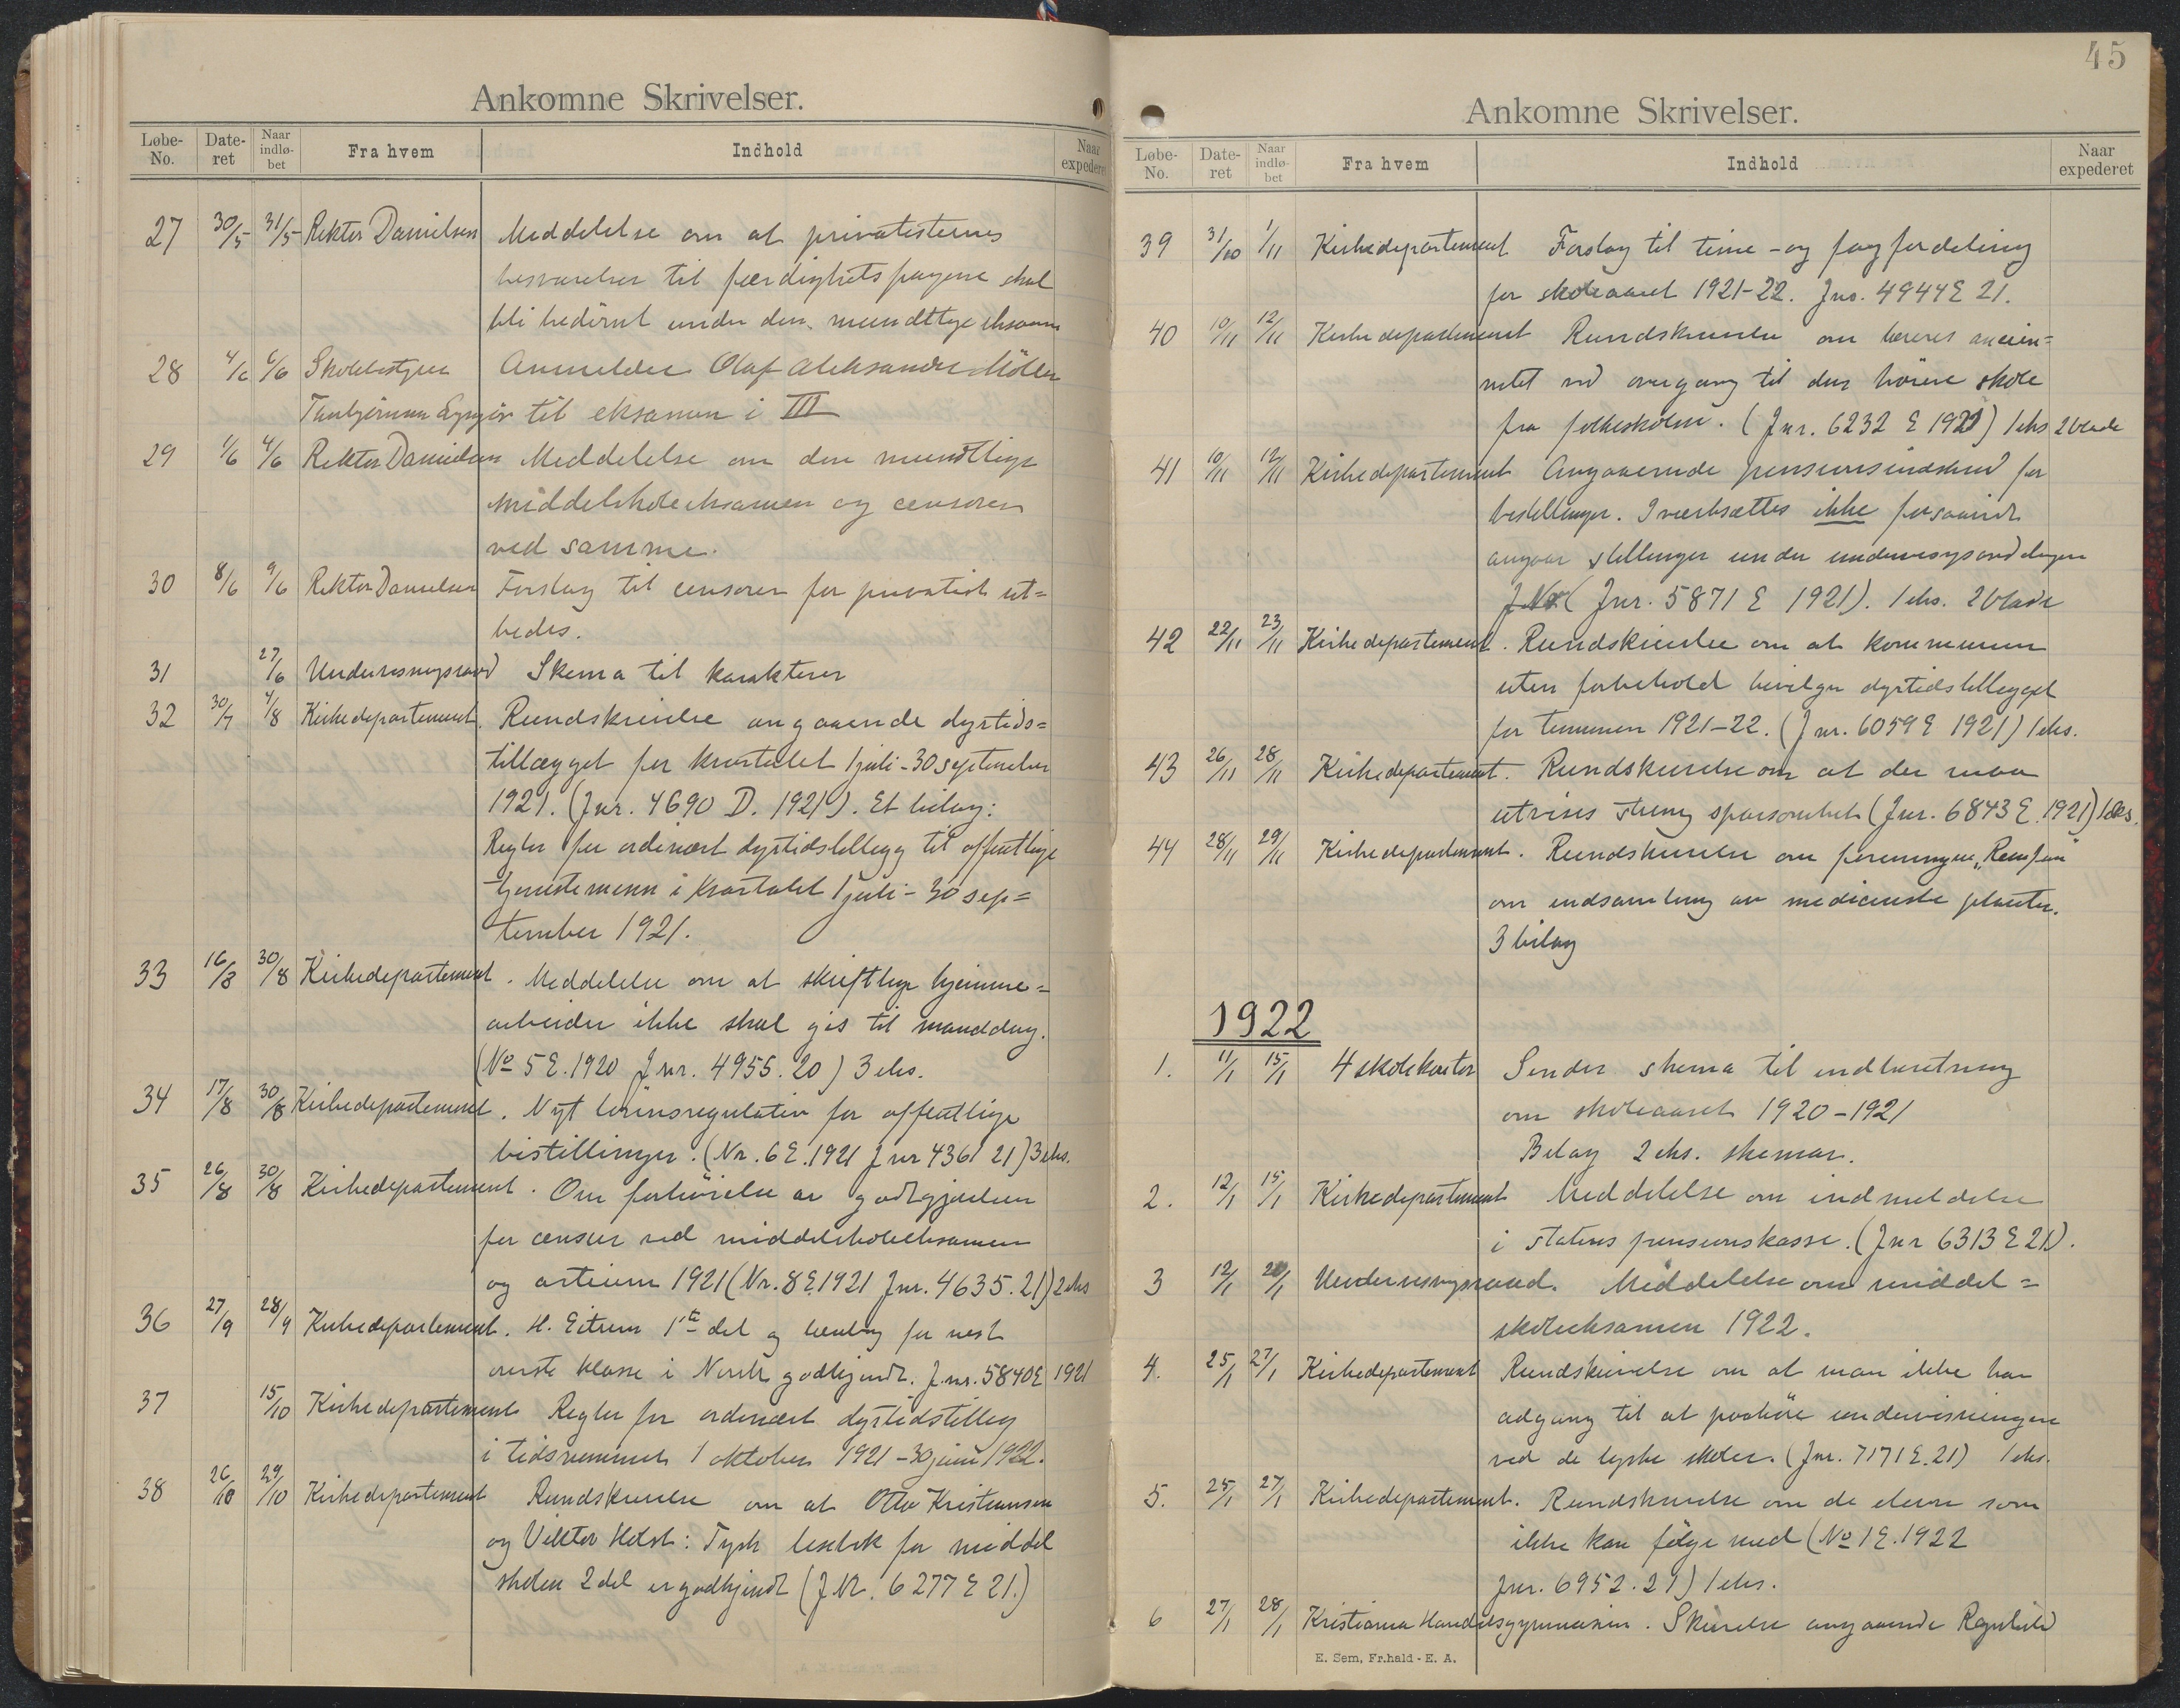 Ankomne Skrivelser.
Løbe-No. Date-ret Naar indlø-bet Fra hvem Indhold Naar expederet
27 30/5 31/5 Rektor Danielsen Meddelelse om at privatisternes
besvarelser til færdighetsfagene skal
bli bedömt under den mundtlige eksamen
28 4/6 6/6 Skolebestyrer Anmelder Olaf Aleksander Möller
til eksamen i III
29 1/6 4/6 Rektor Danielsen Meddelelse om den mundtlige
middelskoleeksamen og censorer
ved samme.
30 8/6 9/6 Rektor Danielsen Forslag til censorer for privatist ut=
bedes.
31 27/6 Undervisningsraad Skema til karakterer
32 30/7 4/8 Kirkedepartement. Rundskrivelse angaaende dyrtids=
tillægget for kvartalet 1 juli - 30 september
1921. (Jnr. 4690 D. 1921). Et bilag:
Regler for ordinært dyrtidstillegg til offentlige
tjenestemenn i kvartalet 1 juli - 30 sep=
tember 1921.
33 16/8 30/8 Kirkedepartement. Meddelelse om at skriftlige hjemme=
arbeider ikke skal gis til manddag.
(No 5 E. 1920 Jnr. 4955. 20) 3 eks.
34 17/8 30/8 Kirkedepartement. Nyt lönnsregulativ for offentlige
bistillinger. (Nr. 6 E. 1921 Jnr 4361 21) 3 eks.
35 26/8 30/8 Kirkedepartement. Om forhöielse av godtgjörelsen
for censur ved middelskoleeksamen
og artium 1921 (Nr. 8 E 1921 Jnr. 4635. 21) 2 eks
36 27/9 28/9 Kirkedepartement. H. Eitrem 1ste del og for nest
överste klasse i Norsk godkjendt. J.nr. 5840 E 1921
37 15/10 Kirkedepartement Regler for ordinært dyrtidstillæg
i tidsrummet 1 oktober 1921 - 30 juni 1922.
38 26/10 29/10 Kirkedepartement Rundskrivelse om at Otto Kristiansen
og Viktor Holst: Tysk lesebok for middel
skolen 2 del er godkjendt (J.Nr. 6277 E 21.)
45
Ankomne Skrivelser.
Løbe-No. Date-ret Naar indlø-bet Fra hvem Indhold Naar expederet
39 31/10 1/11 Kirkedepartement Forslag til time - og fagfordeling
for skoleaaret 1921-22. Jno. 4944 E 21.
40 10/11 12/11 Kirkedepartement Rundskrivelse om læreres ancien=
nitet ved overgang til den höiere skole
fra folkeskolen. (Jnr. 6232 E 1921) 1 eks 2 blade
41 10/11 12/11 Kirkedepartement Angaaende pensionsindskud for
bestillinger. Iverksættes ikke forsaavidt
angaar stillinger under undervisningsavdelingen
(Jnr. 5871 E 1921). 1 eks. 2 blade
42 22/11 23/11 Kirkedepartement. Rundskrivelse om at kommunen
uten forbehold bevilger dyrtidstillegget
for terminen 1921-22. (Jnr. 6059 E 1921) 1 eks.
43 26/11 28/11 Kirkedepartement. Rundskrivelse om at der maa
utvises streng sparsomhet (Jnr. 6843 E. 1921) 1 eks.
44 28/11 29/11 Kirkedepartement. Rundskrivelse om foreningen
om indsamling av medicinske planter.
3 bilag
1922
1. 11/1 15/1 4 skolekontor Sender skema til indberetning
om skoleaaret 1920-1921
Bilag 2 eks. skemaer.
2. 12/1 15/1 Kirkedepartement Meddelelse om indmeldelse
i statens pensionskasse. (Jnr 6313 E 21).
3 12/1 Undervisningsraad. Meddelelse om middel=
skoleeksamen 1922.
4. 25/1 27/1 Kirkedepartement Rundskrivelse om at man ikke har
adgang til at paahöre undervisningen
ved de tyske skoler. (Jnr. 7171 E. 21) 1 eks.
5. 25/1 27/1 Kirkedepartement. Rundskrivelse om de elever som
ikke kan følge med (No 1 E. 1922
Jnr. 6952. 21) 1 eks.
6 27/1 28/1 Kristiania Handelsgymnasium. Skrivelse angaaende Ragnhild
E. Sem, Fr.hald - E. A.